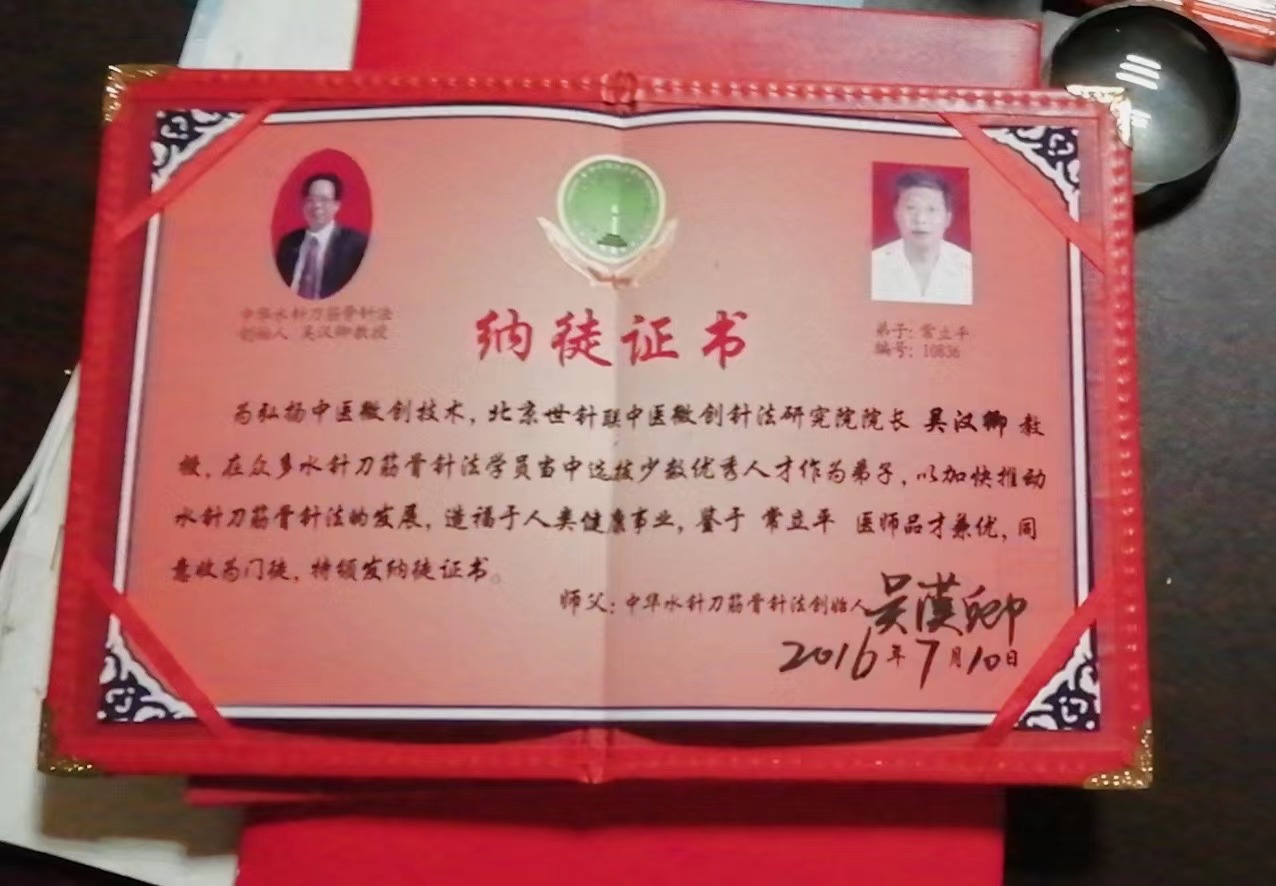 中华水针刀筋骨针法
创始人 吴汉卿教授
弟子：常立平
编号：10836
纳徒证书
为弘扬中医微创技术，北京世针联中医微创针法研究院院长 吴汉卿 教
授，在众多水针刀筋骨针法学员当中选拔少数优秀人才作为弟子，以加快推动
水针刀筋骨针法的发展，造福于人类健康事业，鉴于 常立平 医师品才兼优，同
意收为门徒，特颁发纳徒证书。
师父：中华水针刀筋骨针法创始人吴汉卿
2016年7月10日